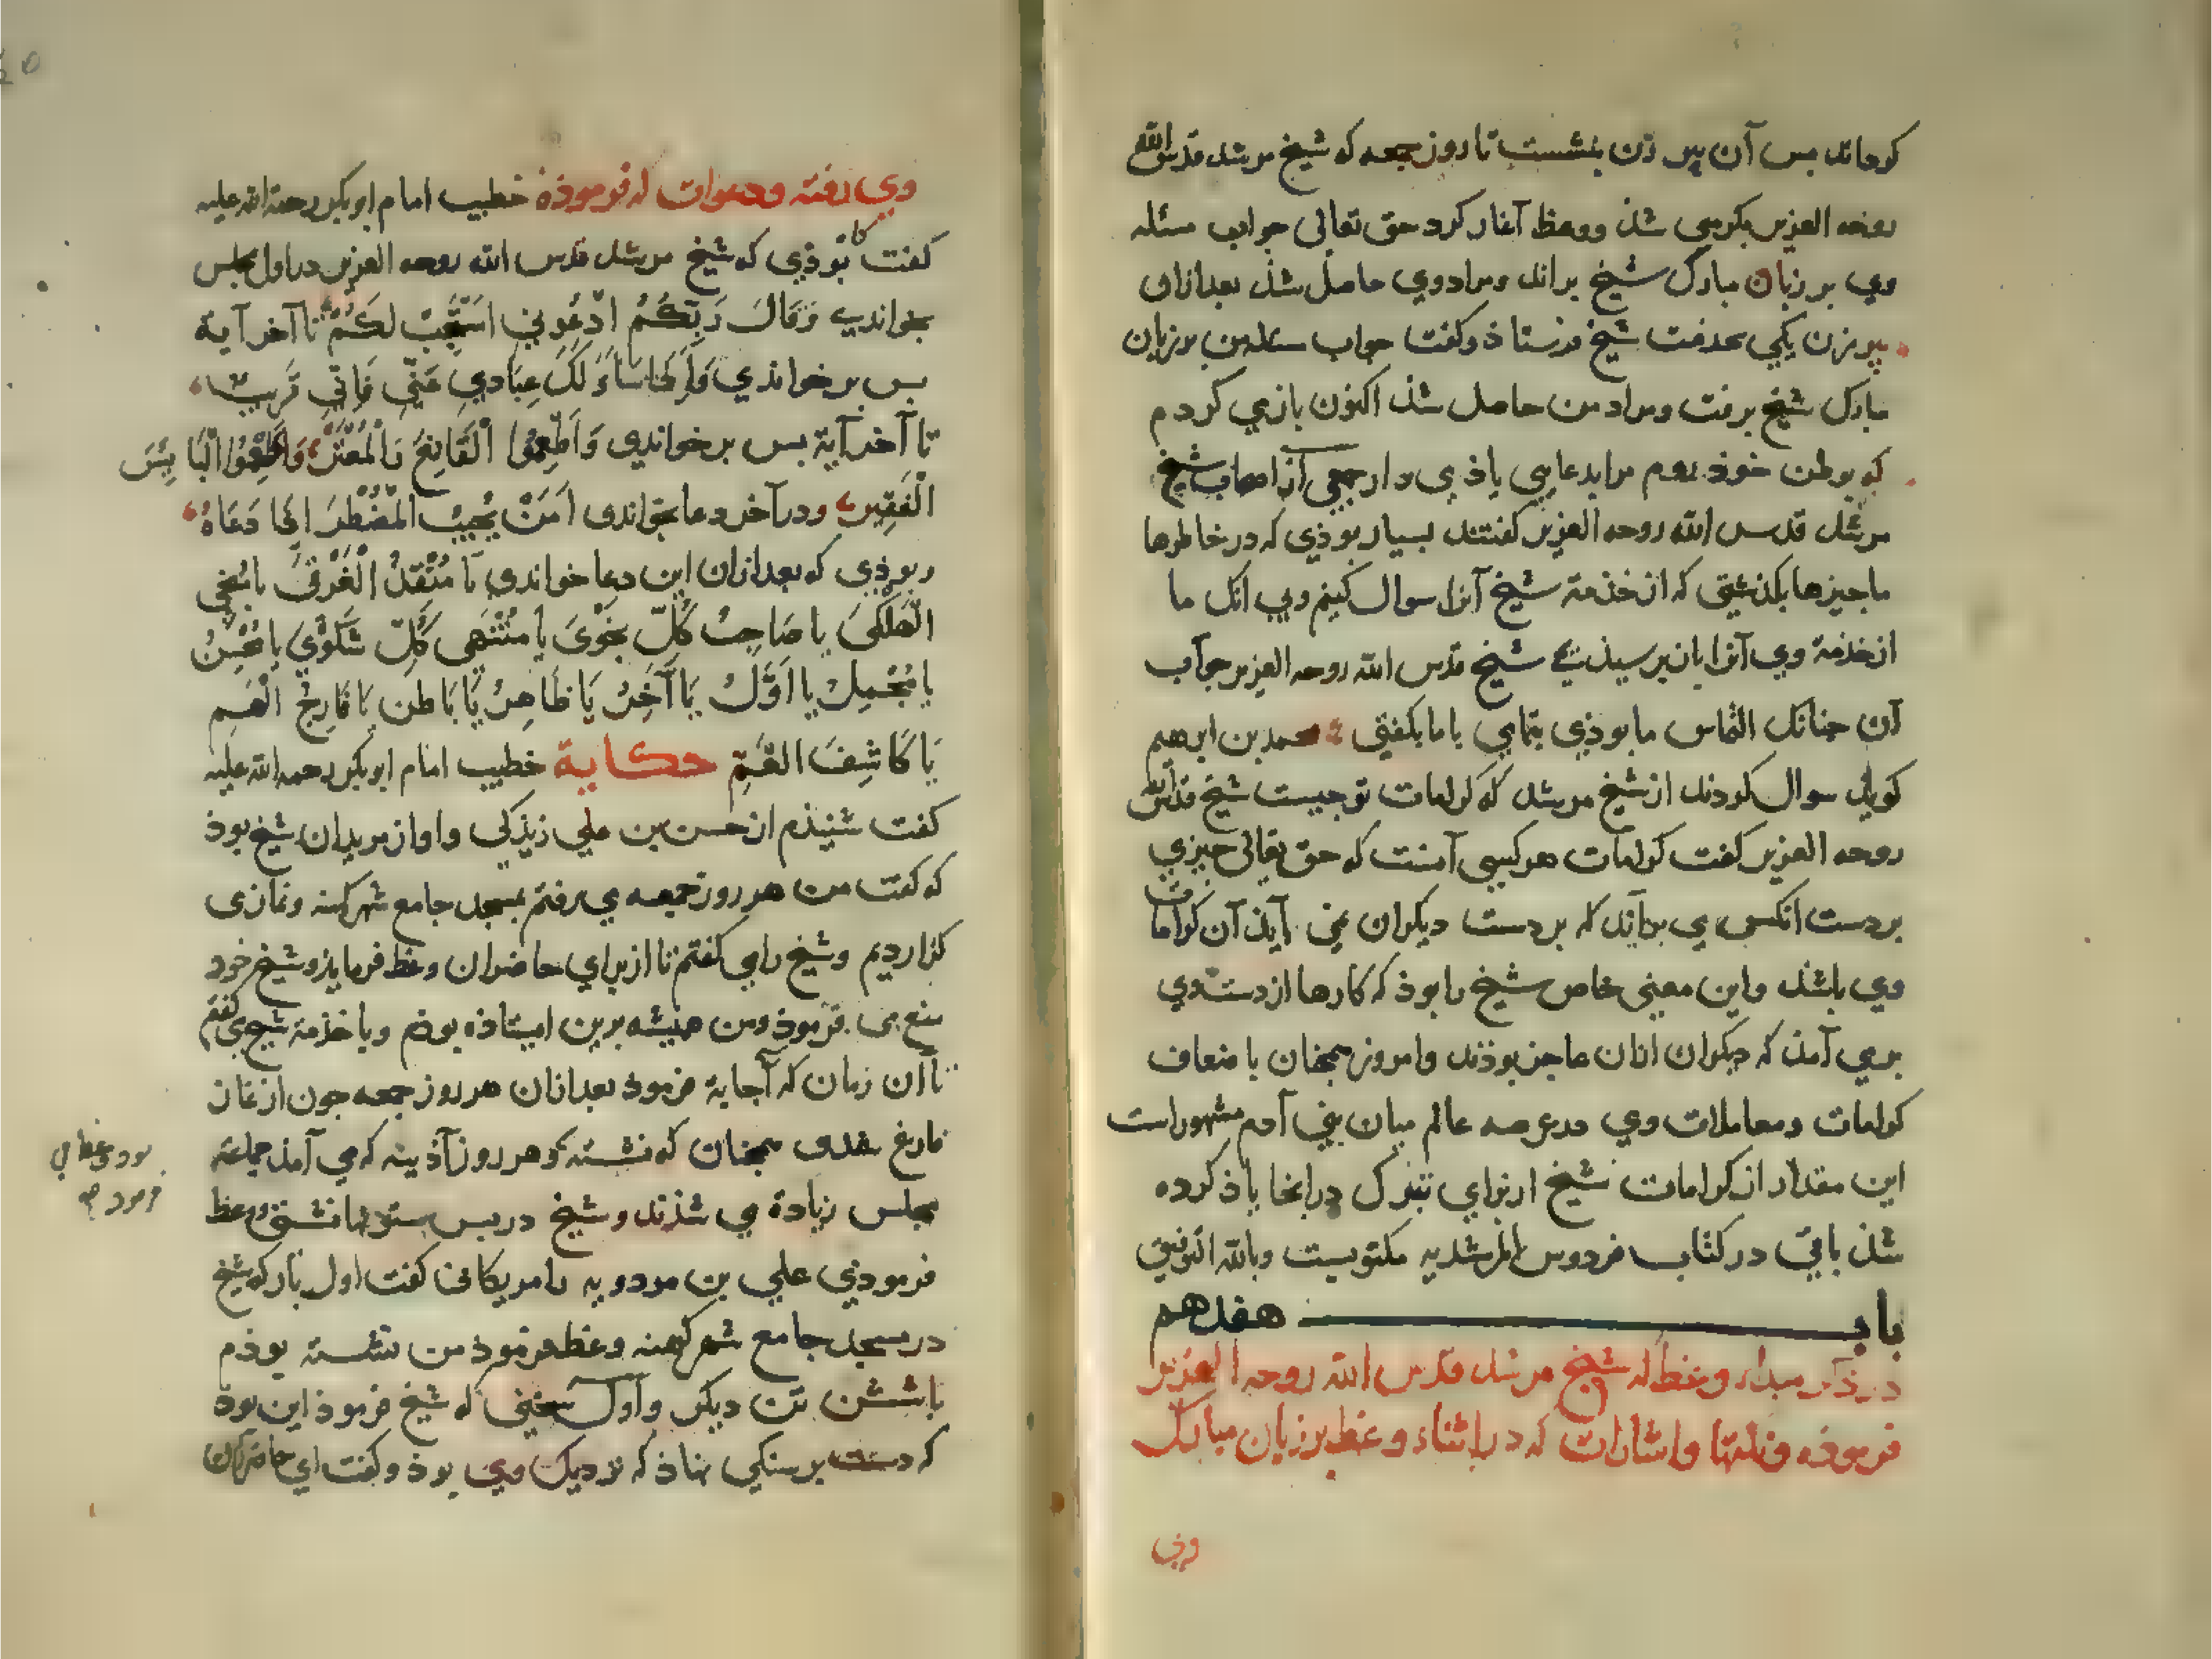 کرداند بس آن پیر زن بنشست تا روز جمعه که شیخ مرشد قدس الله
روحه العزیز بکرسی شذ و وعظ آغاز کرد حق تعالی جواب مسئله
وی بر زبان مبارک شیخ براند و مراد وی حاصل شذ بعد ازان
پیرزن یکی بخدمت شیخ فرستاذ و کفت جواب مسئله من بر زبان
مبارک شیخ برفت و مراد من حاصل شذ اکنون بازمی کردم
که بوطن خوذ روم مرا بدعایی یاذ می دار جمعی از اصحاب شیخ
مرشد قدس الله روحه العزیز کفتند بسیار بوذی که در خاطرها
ما جیزها بکذشتی که از خذمة شیخ آنرا سوال کنیم و بی انک ما
از خذمة وی آنرا باز پرسیذیمی شیخ قدس الله روحه العزیز جواب
آن جنانک التماس ما بوذی بتمامی با ما بکفتی محمد بن ابرهیم
کوید سوال کردند از شیخ مرشد که کرامات تو جیست شیخ قدس الله
روحه العزیز کفت کرامات هر کسی آنست که حق تعالی جیزی
بر دست انکس می براند که بر دست دیکران نمی رانذ آن کرامات
وی باشذ و این معنی خاص شیخ را بوذ که کارها از دست وی
برمی آمذ که دیکران ازان عاجز بوذند و امروز همجنان باضعاف
کرامات و معاملات وی در عرصه عالم میان بنی آدم مشهور است
این مقدار از کرامات شیخ از برای تبرک در اینجا یاذ کرده
شذ باقی در کتاب فردوس المرشدیه مکتوبست وبالله التوفیق
باب هفدهم
در ذکر مبداء وعظ که شیخ مرشد قدس الله روحه العزیز
فرموذه و نکتها و اشارات که در اثناء وعظ بر زبان مبارک
وی
وی رفته و دعوات که فرموذه خطیب امام ابوبکر رحمة الله علیه
کفت کاه بوذی که شیخ مرشد قدس الله روحه العزیز در اول مجلس
بخواندی وَقَالَ رَبُّكُمُ ادْعُونِي اَسْتَجِبْ لَكُمْ تا آخر آیة
بس برخواندی وَاِذَا سَاَلَكَ عِبَادِي عَنِّي فَاِنِّي قَرِيبٌ
تا آخر آیة بس برخواندی وَاَطْعِمُوا الْقَانِعَ وَالْمُعْتَرَّ وَاَطْعِمُوا الْبَائِسَ
الْفَقِيرَ و در آخر دعا بخواندی اَمَّنْ يُجِيبُ الْمُضْطَرَّ اِذَا دَعَاهُ
و بوذی که بعد ازان این دعا خواندی یَا مُنْقِذَ الْغَرْقَى یَا مُنْجِيَ
الْهَلْكَى یَا صَاحِبَ كُلِّ نَجْوَى یَا مُنْتَهَى كُلِّ شَكْوَى یَا مُحْسِنُ
یَا مُجْمِلُ یَا اَوَّلُ یَا آخِرُ یَا ظَاهِرُ یَا بَاطِنُ یَا فَارِجَ الْهَمِّ
یَا كَاشِفَ الْغَمِّ حکایة خطیب امام ابوبکر رحمه الله علیه
کفت شنیذم از حسن بن علی زیذکی و او از مریدان شیخ بوذ
که کفت من هر روز جمعه می رفتم بمسجد جامع شهر کهنه و نمازی
کزاردیم و شیخ را می کفتم تا از برای حاضران وعظ فرمایذ و شیخ خود
منع می فرموذ و من همیشه برین ایستاذه بوذم و با خذمة شیخ می کفتم
تا آن زمان که اجابة فرموذ بعد ازان هر روز جمعه جون از نماز
فارغ شدی همجنان که نشسته و هر روز آذینه که می آمذ جماعة
مجلس زیادة می شذند و شیخ در پس ستونها نشستی و وعظ
فرموذی علی بن مردویه رامریکانی کفت اول بار که شیخ
در مسجد جامع شهر کهنه وعظ فرموذ من نشسته بوذم
با شش تن دیکر و اول سخنی که شیخ فرموذ این بوذ
که دست بر سنکی نهاذ که نزدیک وی بوذ و کفت ای حاضران
بود وعظ می
فرمود